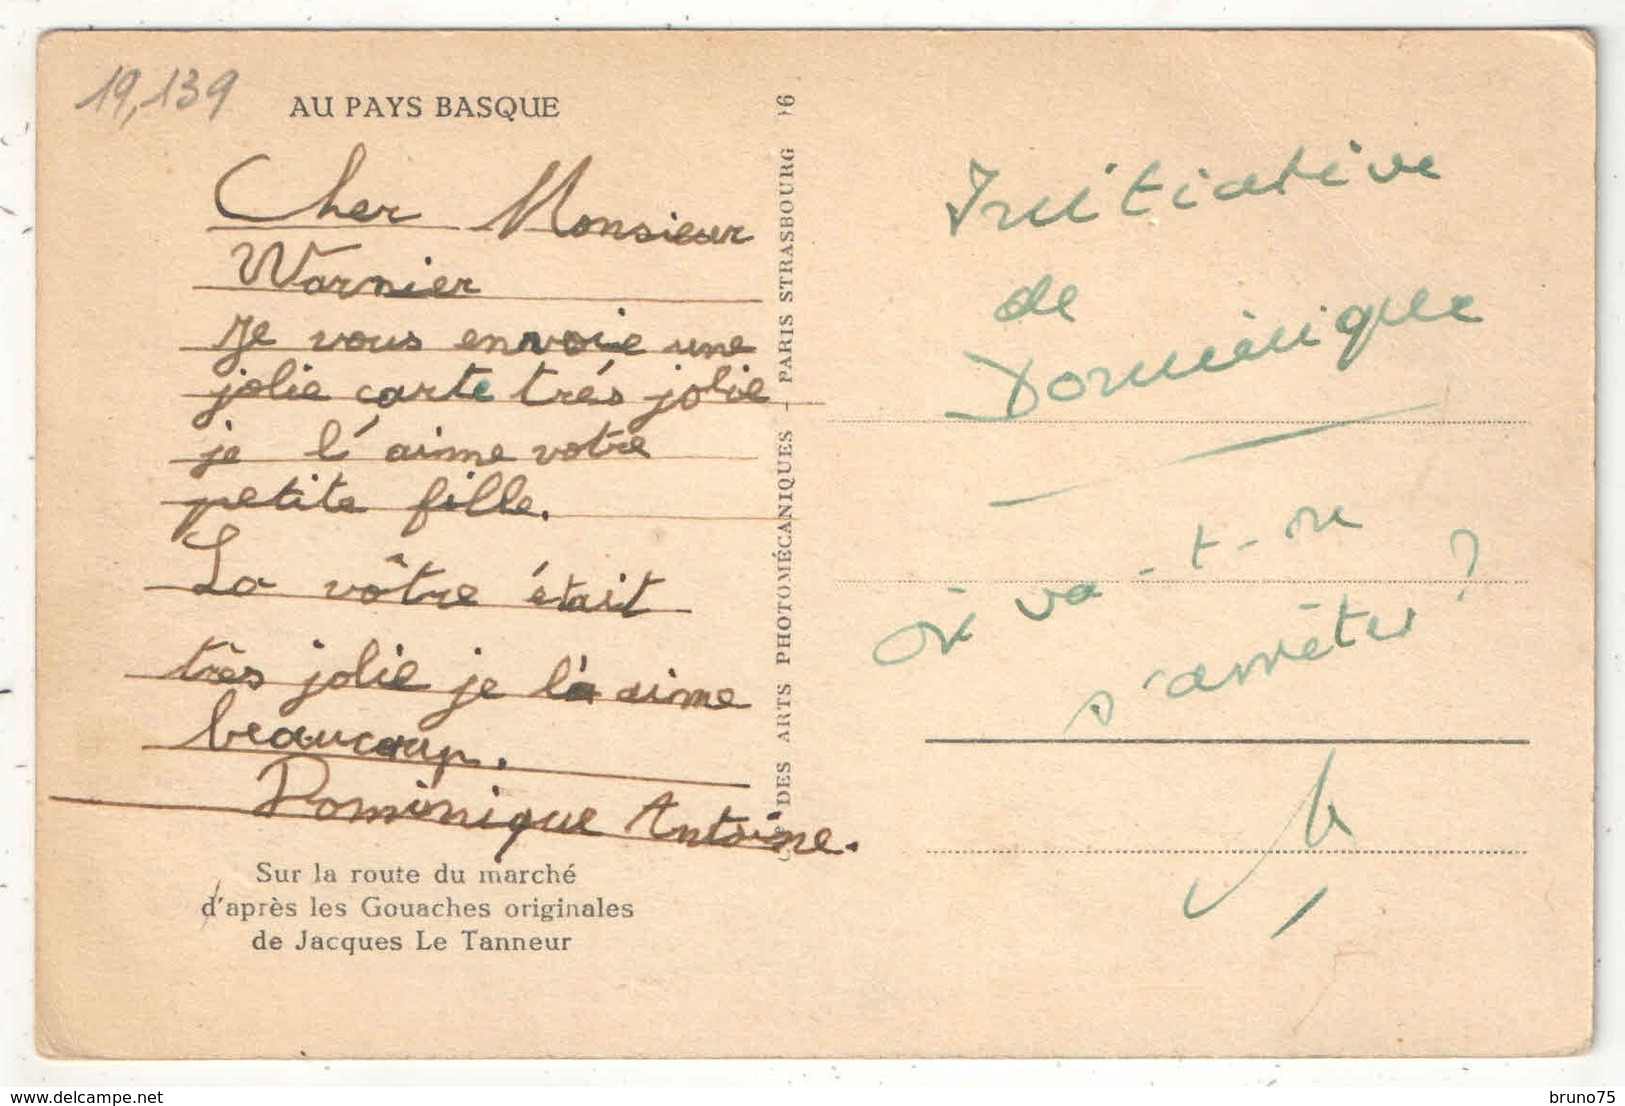 19,139
AU PAYS BASQUE
Cher Monsieur
Warnier
Je vous envoie une
jolie carte trés jolie
je l'aime votre
petite fille.
La vôtre était
très jolie je la aime
beaucoup.
Dominique Antoine.
Sur la route du marché
d'après les Gouaches originales
de Jacques Le Tanneur
DES ARTS PHOTOMÉCANIQUES - PARIS STRASBOURG
Initiative
de
Dominique
où va-t-on
s'arrêter ?
www.delcampe.net
bruno75